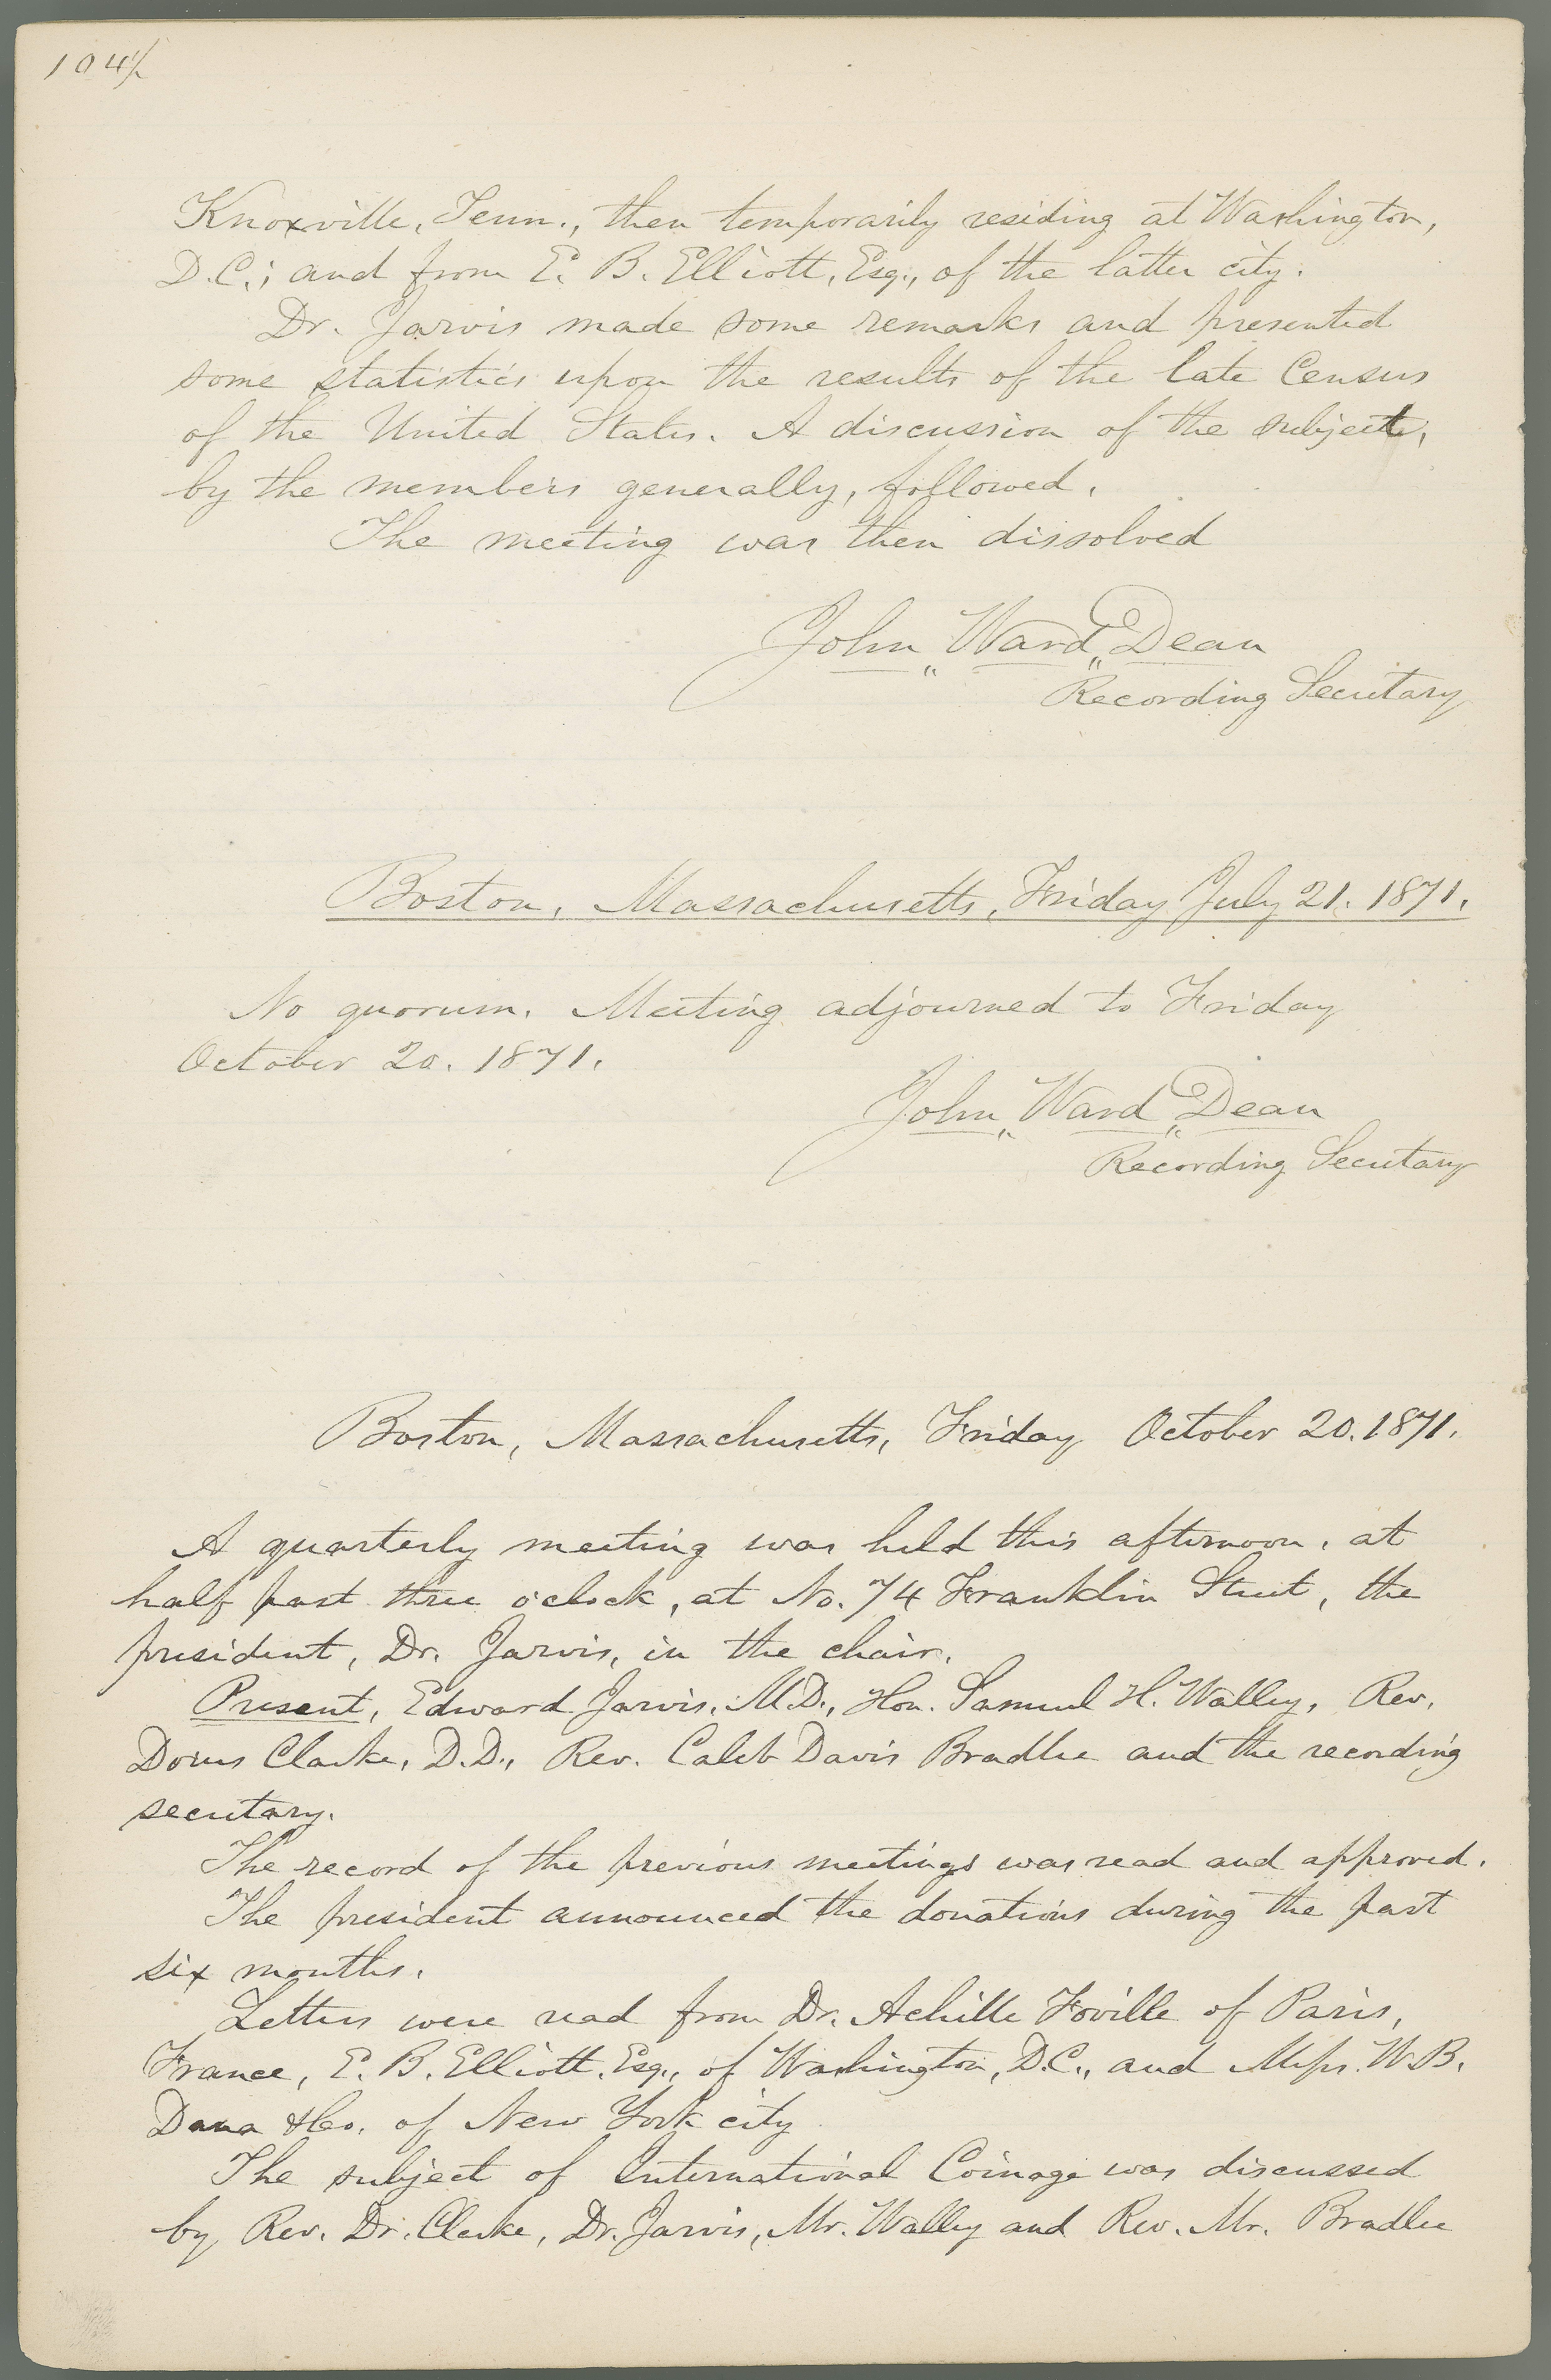 104/
Knoxville, Tenn., then temporarily residing at Washington,
D.C.; and from E. B. Elliott, Esq., of the latter city.
Dr. Jarvis made some remarks and presented
some statistics upon the results of the late Census
of the United States. A discussion of the subject,
by the members generally, followed.
The meeting was then dissolved
John Ward Dean
Recording Secretary
Boston, Massachusetts, Friday July 21. 1871.
No quorum. Meeting adjourned to Friday
October 20. 1871.
John Ward Dean
Recording Secretary
Boston, Massachusetts, Friday October 20. 1871.
A quarterly meeting was held this afternoon, at
half past three o'clock, at No. 74 Franklin Street, the
president, Dr. Jarvis, in the chair.
Present, Edward Jarvis, M.D., Hon. Samuel H. Walley, Rev.
Dorus Clarke, D.D., Rev. Caleb Davis Bradlee and the recording
secretary.
The record of the previous meetings was read and approved.
The president announced the donations during the past
six months.
Letters were read from Dr. Achille Foville of Paris,
France, E. B. Elliott, Esq., of Washington, D.C., and Messrs. W. B.
Dana & Co. of New York city
The subject of International Coinage was discussed
by Rev. Dr. Clarke, Dr. Jarvis, Mr. Walley and Rev. Mr. Bradlee